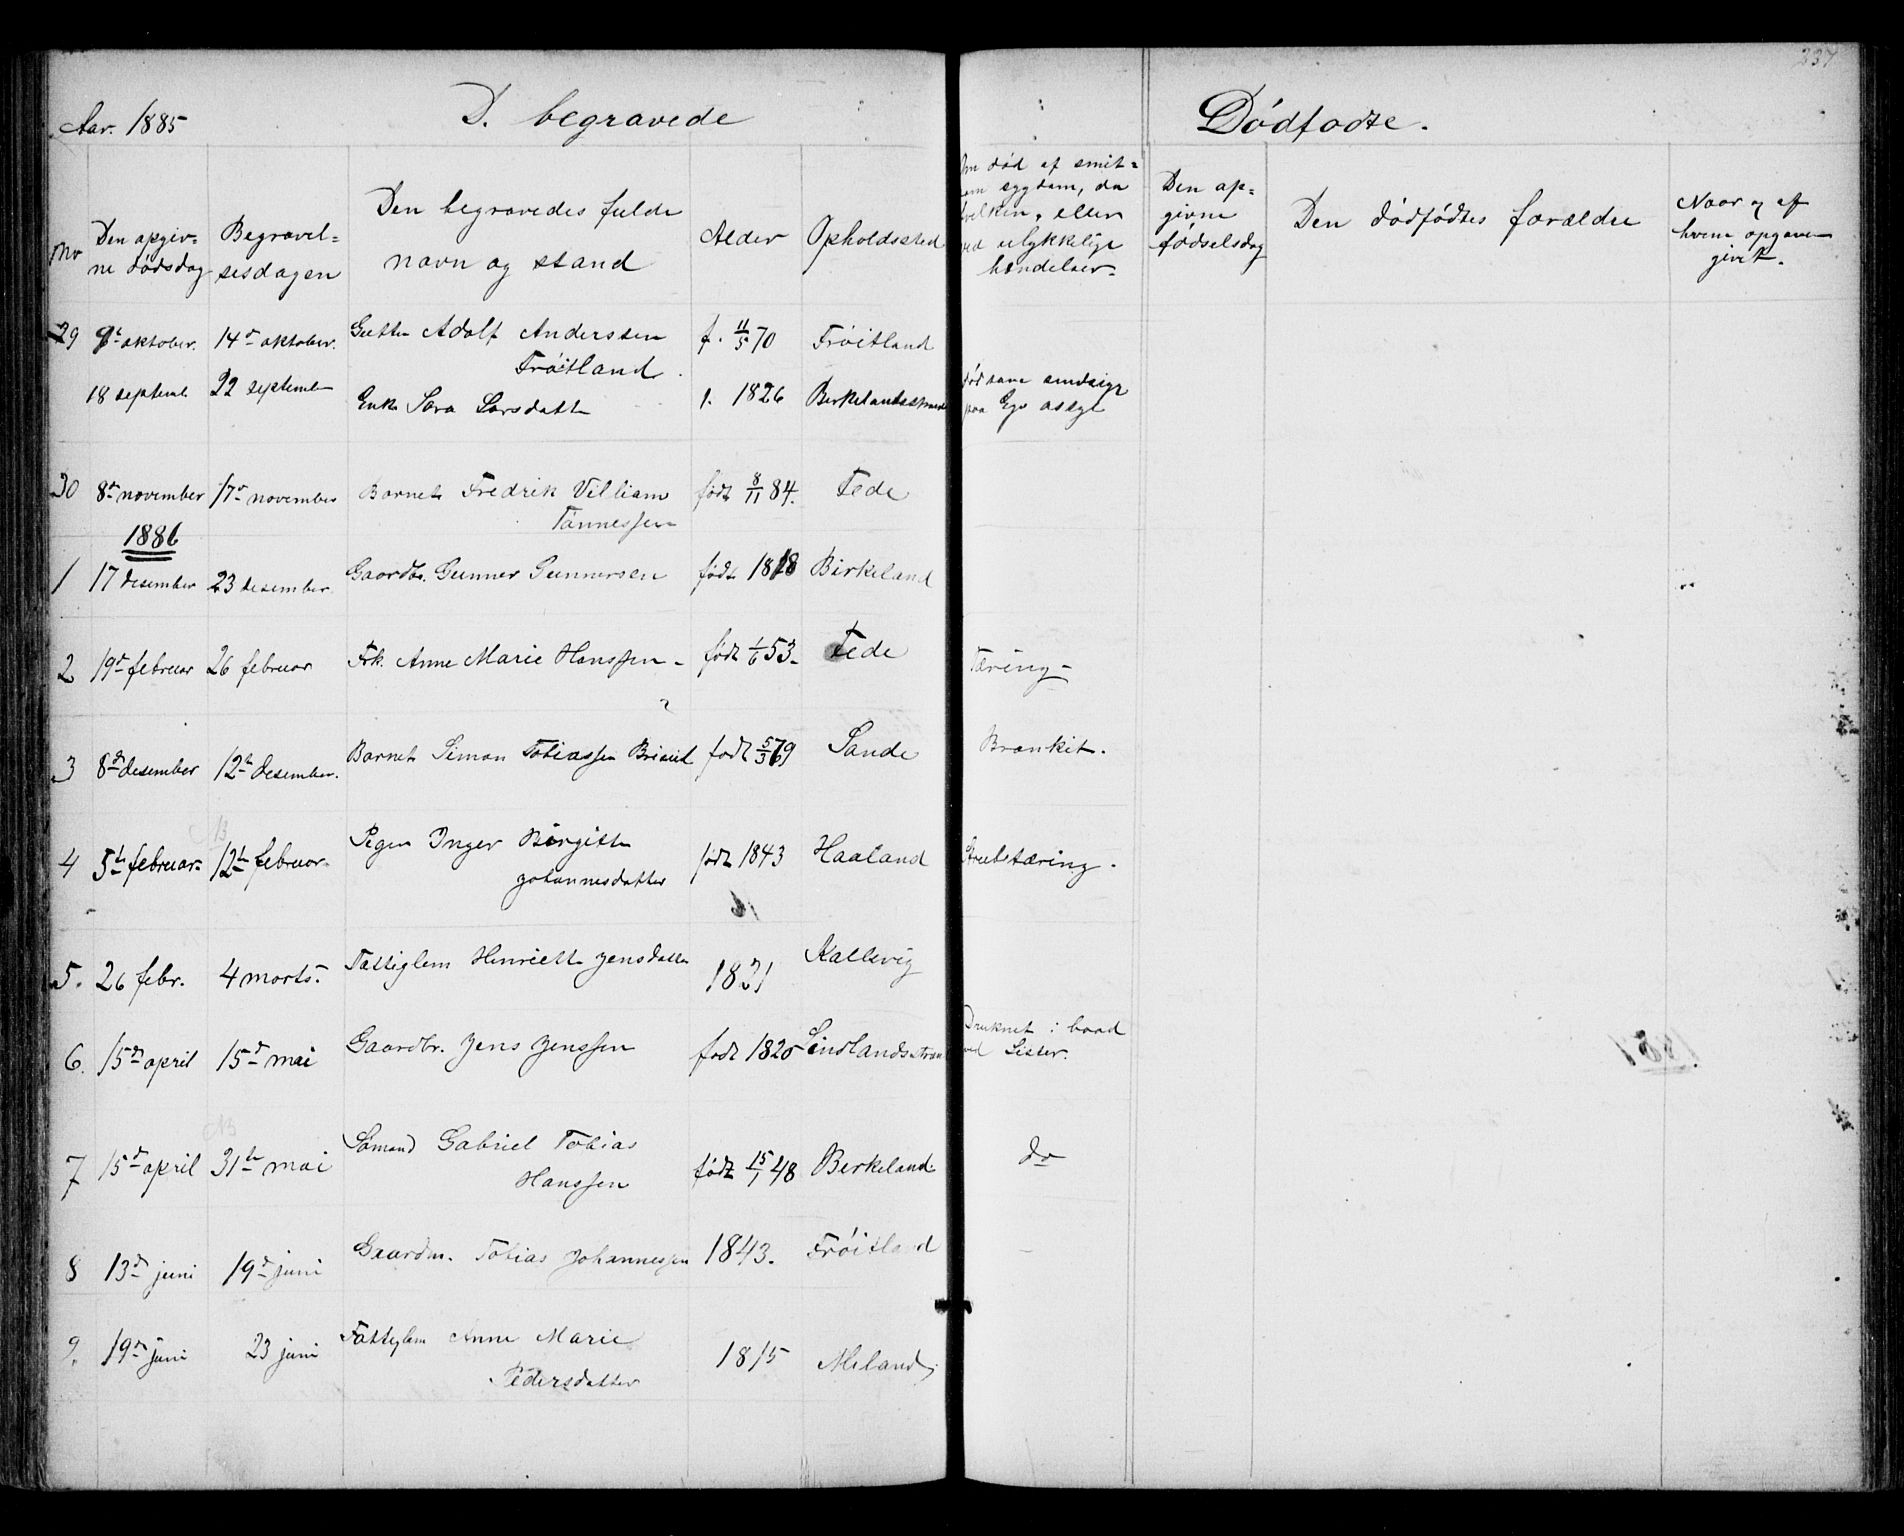 237
Aar. 1885 D. begravede Dödfödte.
Nr Den opgivne dödsdag Begravelsesdagen Den begravedes fulde navn og stand Alder Opholdssted
död af smitsom sygdom, da hvilken, eller ved ulykkelige hendelser. Den opgivne födselsdag Den dödfödtes forældre Naar og af hvem opgaven givet.
29 oktober. 14d oktober. Gutten Adolf Anderssen f. 11/5 70 Fröitland
Fröitland.
18 septemb 22 september Enke Sara Larsdatt 1826 Birkelandsstrand
30 8d november 17d november Barnet Fredrik Villiam födt 8/11 84. Fede
Tönnessen
1886
1 17 desember 23 desember. Gaardbr. Gunner Gunnersen födt 1818 Birkeland
2 19d februar 26 februar Frk. Anne Marie Hanssen - födt 1/6 53. Fede Tæring -
3 8d desember 12te desember. Barnet Simon Tobiassen födt Sande Bronkit.
4 5te februar. 12te februar. Pigen Inger Birgitte födt 1843 Haaland
Johannesdatter
5. 26 febr. 4 marts. Fattiglem Henriette Jensdatter Kallevig
6. 15d april 15d mai Gaardbr. Jens Jenssen födt 1820 Lindlandsstrand Druknet i baad
ved Lister.
7 15d april 31te mai Sömand Gabriel Tobias födt 15/1 48 Birkeland do
Hanssen
8 13d juni 19d juni Gaardm. Tobias Johannessen 1843. Fröitland
9. 19d juni 23 juni Fattiglem Anne Marie 1815 Meland
Pedersdatter